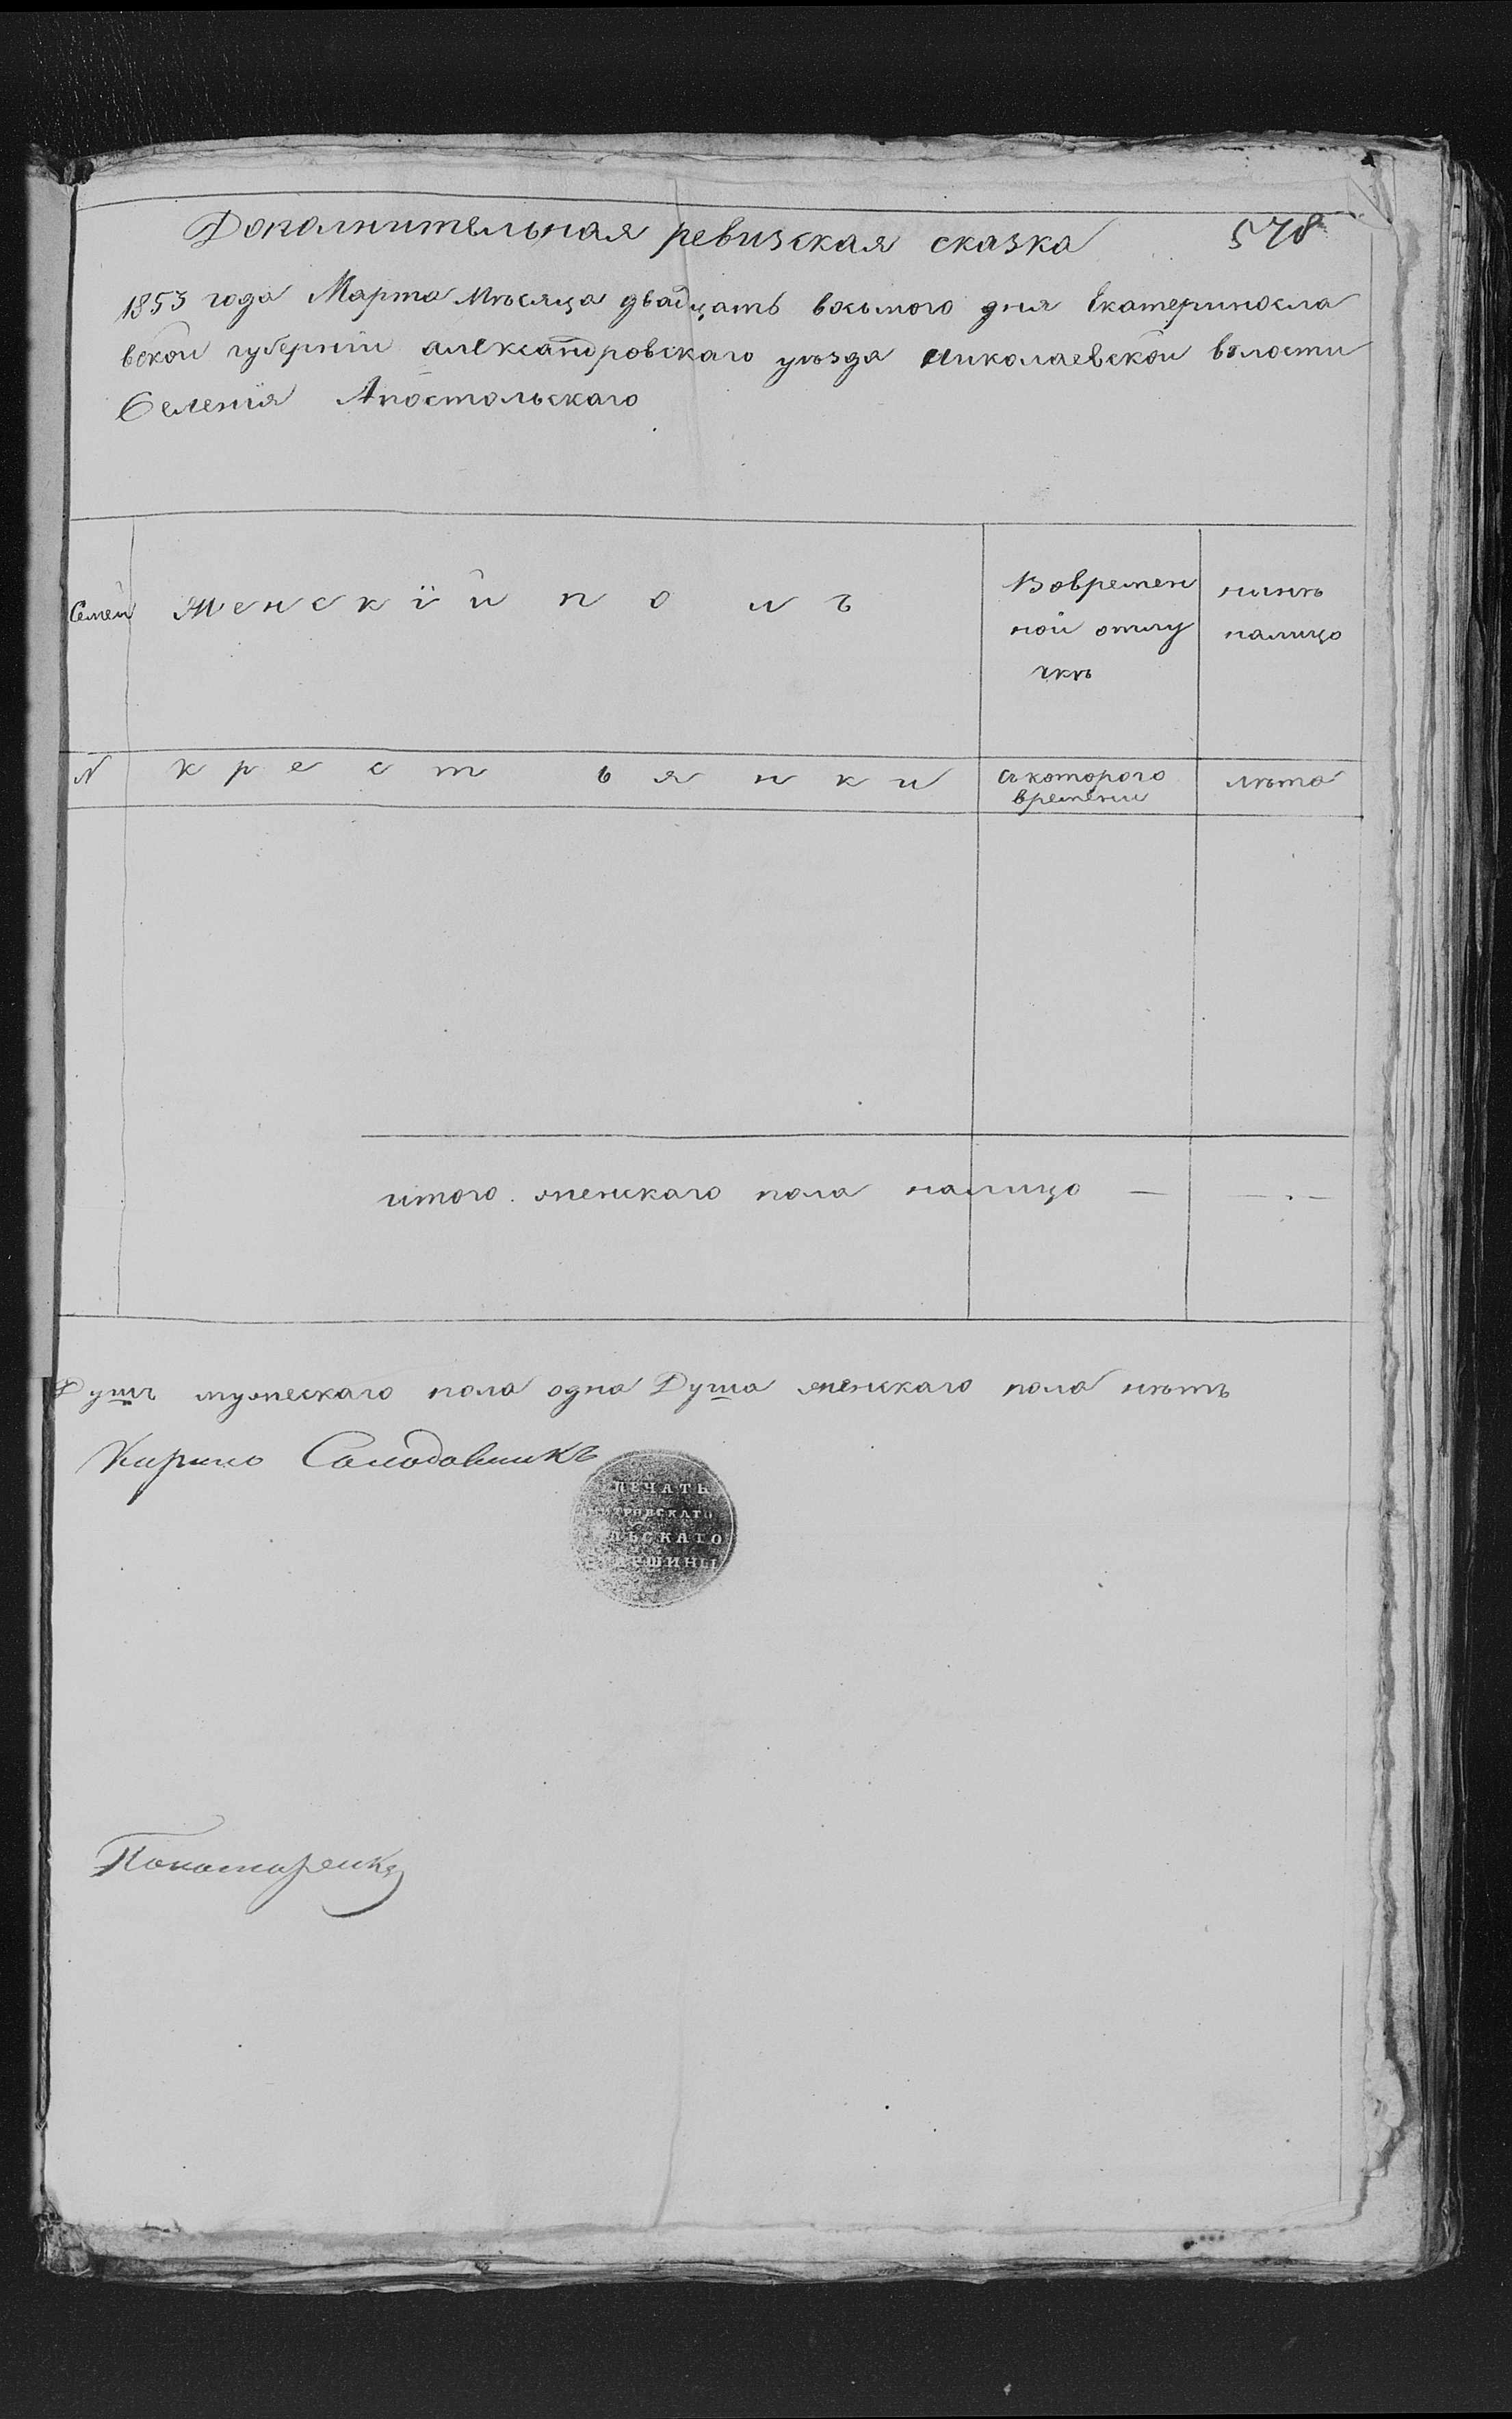 Дополнительная ревизская сказка 578
1853 года Марта Мѣсяца двадцать восьмого дня Екатериносла
вской губерніи александровскаго уѣзда николаевской волости
Селенія Апостольскаго
Семей Женскій полъ Вовремен нинѣ
ной отлу налицо
чкѣ
N крестьянки съ которого лѣта
времени
итого женскаго пола налицо — —
Душъ мужескаго пола одна Душа женскаго пола нѣтъ
Кирило Солодовникъ
ПЕЧАТЬ
ТРОВСКАГО
ЛЬСКАГО
РШИНЫ
Пономаренко